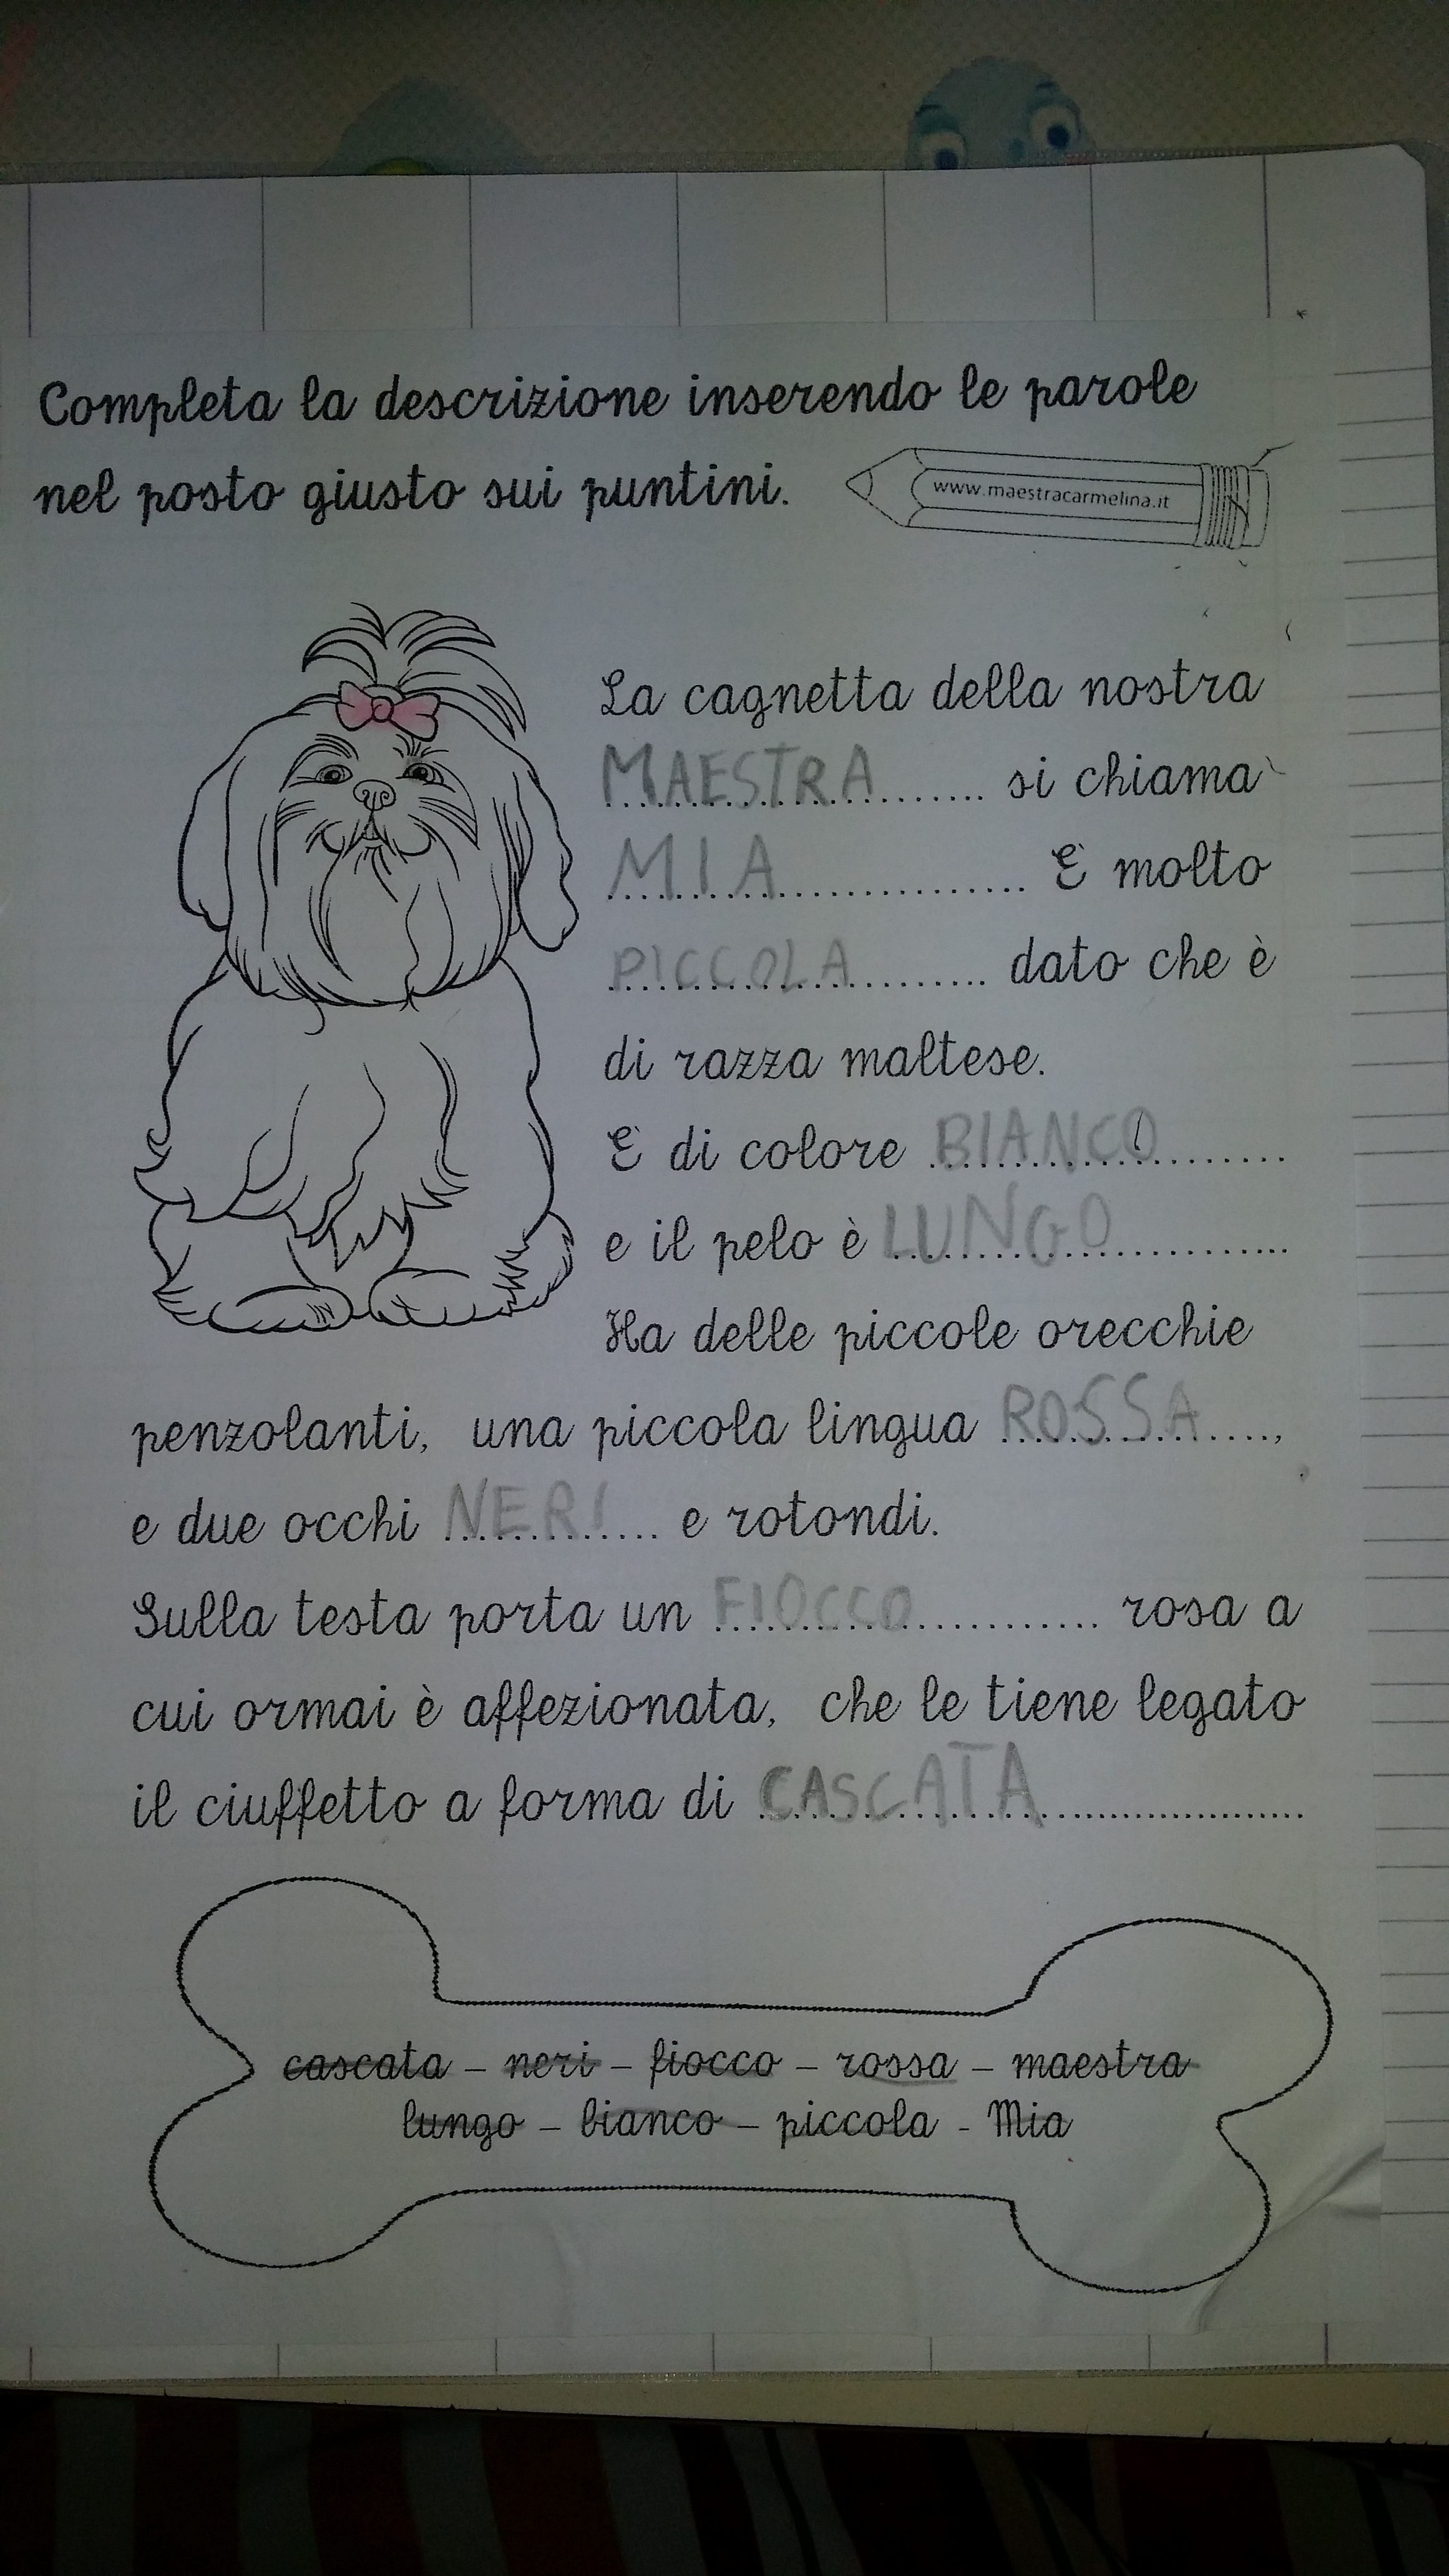 Completa la descrizione inserendo le parole
nel posto giusto sui puntini.
www.maestracarmelina.it
La cagnetta della nostra
MAESTRA si chiama
MIA È molto
PICCOLA dato che è
di razza maltese.
È di colore BIANCO
e il pelo è LUNGO
Ha delle piccole orecchie
penzolanti, una piccola lingua ROSSA,
e due occhi NERI e rotondi.
Sulla testa porta un FIOCCO rosa a
cui ormai è affezionata, che le tiene legato
il ciuffetto a forma di CASCATA
cascata – neri – fiocco – rossa – maestra
lungo – bianco – piccola - Mia